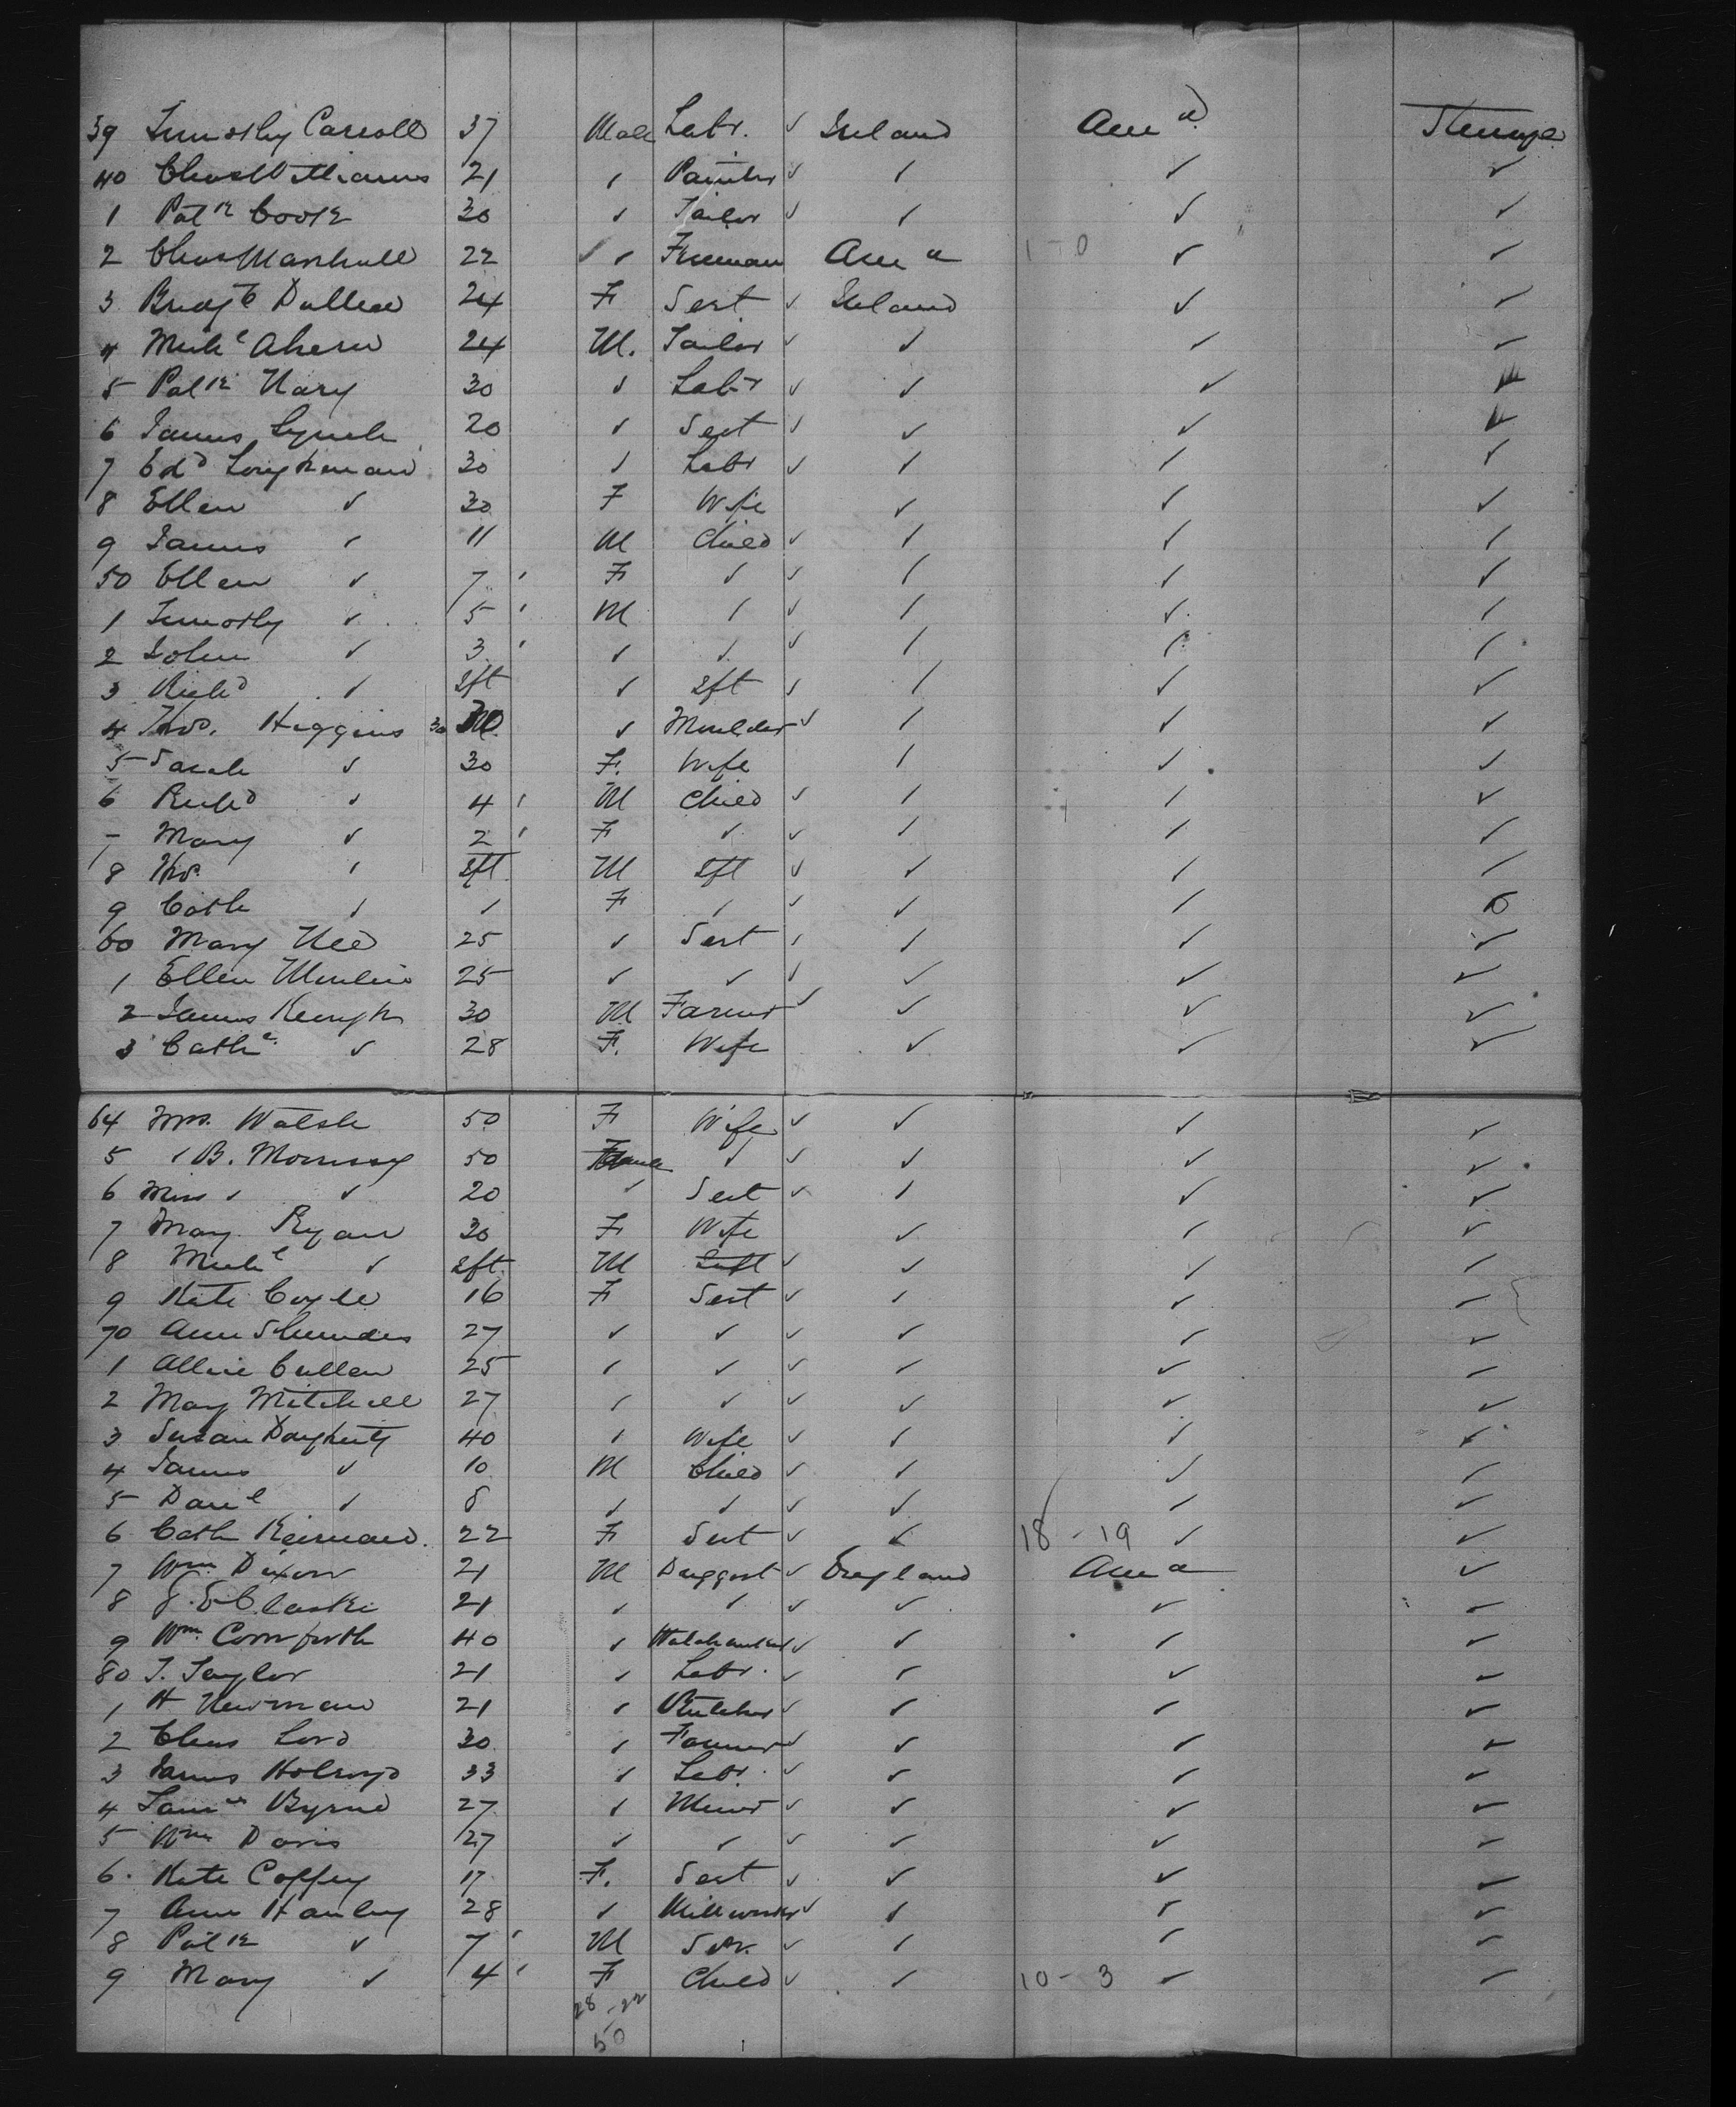 39 Timothy Carroll 37 Male Labr. ✓ Ireland Ama Steerage
40 Chas Williams 21 ✓ Painter ✓ ✓ ✓ ✓
1 Patk Cook 30 ✓ Tailor ✓ ✓ ✓ ✓
2 Chas Marshall 22 ✓ ✓ Fireman Ama 1-0 ✓ ✓
3 Bridgt 24 F Sert ✓ Ireland ✓ ✓
4 Michl Ahern 24 M. Tailor ✓ ✓ ✓ ✓
5 Patk Nary 30 ✓ Labr ✓ ✓ ✓ ✓
6 James Lynch 20 ✓ Sert ✓ ✓ ✓ ✓
7 Edd Loughman 30 ✓ Labr ✓ ✓ ✓ ✓
8 Ellen ✓ 30 F Wife ✓ ✓ ✓
9 James ✓ 11 M Child ✓ ✓ ✓ ✓
50 Ellen ✓ 7 F ✓ ✓ ✓ ✓ ✓
1 Timothy ✓ 5 M ✓ ✓ ✓ ✓ ✓
2 John ✓ 3 ✓ ✓ ✓ ✓ ✓ ✓
3 Richd ✓ Ift ✓ Ift ✓ ✓ ✓ ✓
4 Thos. Higgins 30 ✓ Moulder ✓ ✓ ✓ ✓
5 Sarah ✓ 30 F. Wife ✓ ✓ ✓
6 Richd ✓ 4 M Child ✓ ✓ ✓ ✓
7 Mary ✓ 2 F ✓ ✓ ✓ ✓ ✓
8 Thos. ✓ Ift M Ift ✓ ✓ ✓ ✓
9 Cath ✓ ✓ F ✓ ✓ ✓ ✓ ✓
60 Mary 25 ✓ Sert ✓ ✓ ✓ ✓
1 Ellen 25 ✓ ✓ ✓ ✓ ✓ ✓
2 James Keough 30 M Farmer ✓ ✓ ✓ ✓
3 Cathe ✓ 28 F. Wife ✓ ✓ ✓
64 Mrs. Walsh 50 F Wife ✓ ✓ ✓ ✓
5 ✓ B. Morrissy 50 Female ✓ ✓ ✓ ✓ ✓
6 Miss ✓ ✓ 20 ✓ Sert ✓ ✓ ✓ ✓
7 Mary Ryan 30 F Wife ✓ ✓ ✓
8 Michl ✓ Ift M Inft ✓ ✓ ✓ ✓
9 Kate Coyle 16 F Sert ✓ ✓ ✓ ✓
70 Ann 27 ✓ ✓ ✓ ✓ ✓ ✓
1 Allice Cullen 25 ✓ ✓ ✓ ✓ ✓ ✓
2 Mary Mitchell 27 ✓ ✓ ✓ ✓ ✓ ✓
3 Susan Dougherty 40 ✓ Wife ✓ ✓ ✓ ✓
4 James ✓ 10 M Child ✓ ✓ ✓ ✓
5 Danl ✓ 8 ✓ ✓ ✓ ✓ ✓ ✓
6 Cath 22 F Sert ✓ ✓ 18-19 ✓ ✓
7 Wm. Dixon 21 M Druggist ✓ England Ama ✓
8 J. E. 21 ✓ ✓ ✓ ✓ ✓ ✓
9 Wm. Cornforth 40 ✓ ✓ ✓ ✓ ✓
80 T. Taylor 21 ✓ Labr. ✓ ✓ ✓ ✓
1 H Newman 21 ✓ Butcher ✓ ✓ ✓ ✓
2 Chas Lord 30 ✓ Farmer ✓ ✓ ✓ ✓
3 James Holroyd 33 ✓ Labr. ✓ ✓ ✓ ✓
4 Byrne 27 ✓ Miner ✓ ✓ ✓ ✓
5 Wm Davis 27 ✓ ✓ ✓ ✓ ✓ ✓
6. Kate Coffey 17 F. Sert ✓ ✓ ✓ ✓
7 Ann Hanley 28 ✓ Millworker ✓ ✓ ✓ ✓
8 Patk ✓ 7 M Son. ✓ ✓ ✓ ✓
9 Mary ✓ 4 F Child ✓ ✓ 10-3 ✓ ✓
28-22
50